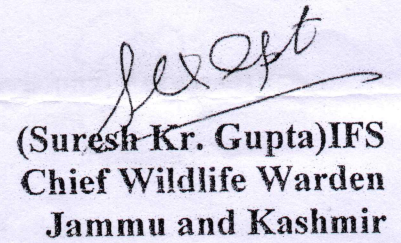 (Suresh Kr. Gupta)IFS
Chief Wildlife Warden
Jammu and Kashmir